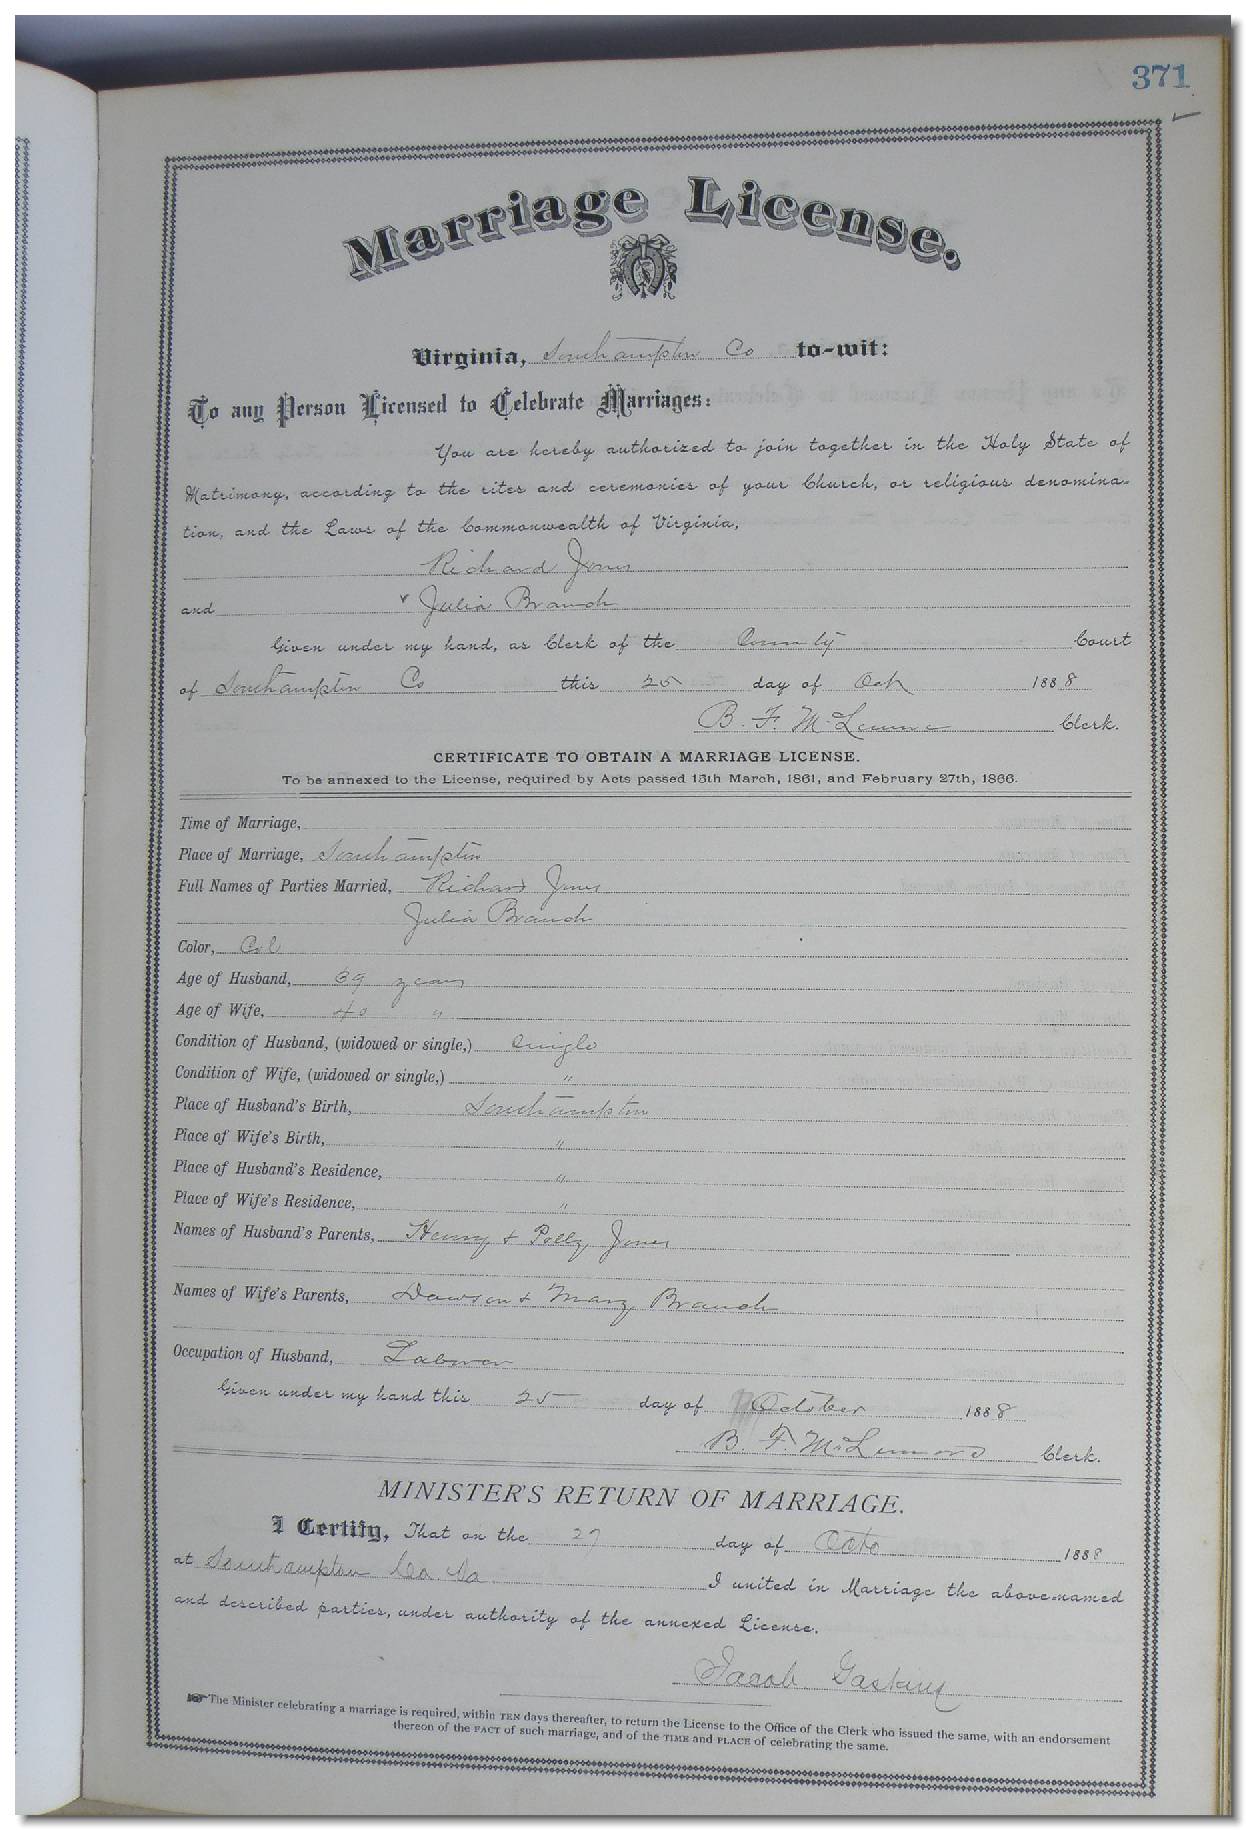 371
Marriage License.
Virginia, Southampton Co to-wit:
To any Person Licensed to Celebrate Marriages:
You are hereby authorized to join together in the Holy State of
Matrimony, according to the rites and ceremonies of your Church, or religious denomina-
tion, and the Laws of the Commonwealth of Virginia,
Richard Jones
and Julia Branch
Given under my hand, as Clerk of the County Court
of Southampton Co this 25 day of Oct 1888
B. F. McLemore Clerk.
CERTIFICATE TO OBTAIN A MARRIAGE LICENSE.
To be annexed to the License, required by Acts passed 15th March, 1861, and February 27th, 1866.
Time of Marriage,
Place of Marriage, Southampton
Full Names of Parties Married, Richard Jones
Julia Branch
Color, Col
Age of Husband, 69 years
Age of Wife, 40 "
Condition of Husband, (widowed or single,) Single
Condition of Wife, (widowed or single,) "
Place of Husband's Birth, Southampton
Place of Wife's Birth, "
Place of Husband's Residence, "
Place of Wife's Residence, "
Names of Husband's Parents, Henry & Polly Jones
Names of Wife's Parents, Dawson & Mary Branch
Occupation of Husband, Laborer
Given under my hand this 25 day of October 1888
B. F. McLemore Clerk.
MINISTER'S RETURN OF MARRIAGE.
I Certify, That on the 27 day of Octo 1888
at Southampton Co Va I united in Marriage the above-named
and described parties, under authority of the annexed License.
Jacob Gaskins
The Minister celebrating a marriage is required, within TEN days thereafter, to return the License to the Office of the Clerk who issued the same, with an endorsement
thereon of the FACT of such marriage, and of the TIME and PLACE of celebrating the same.